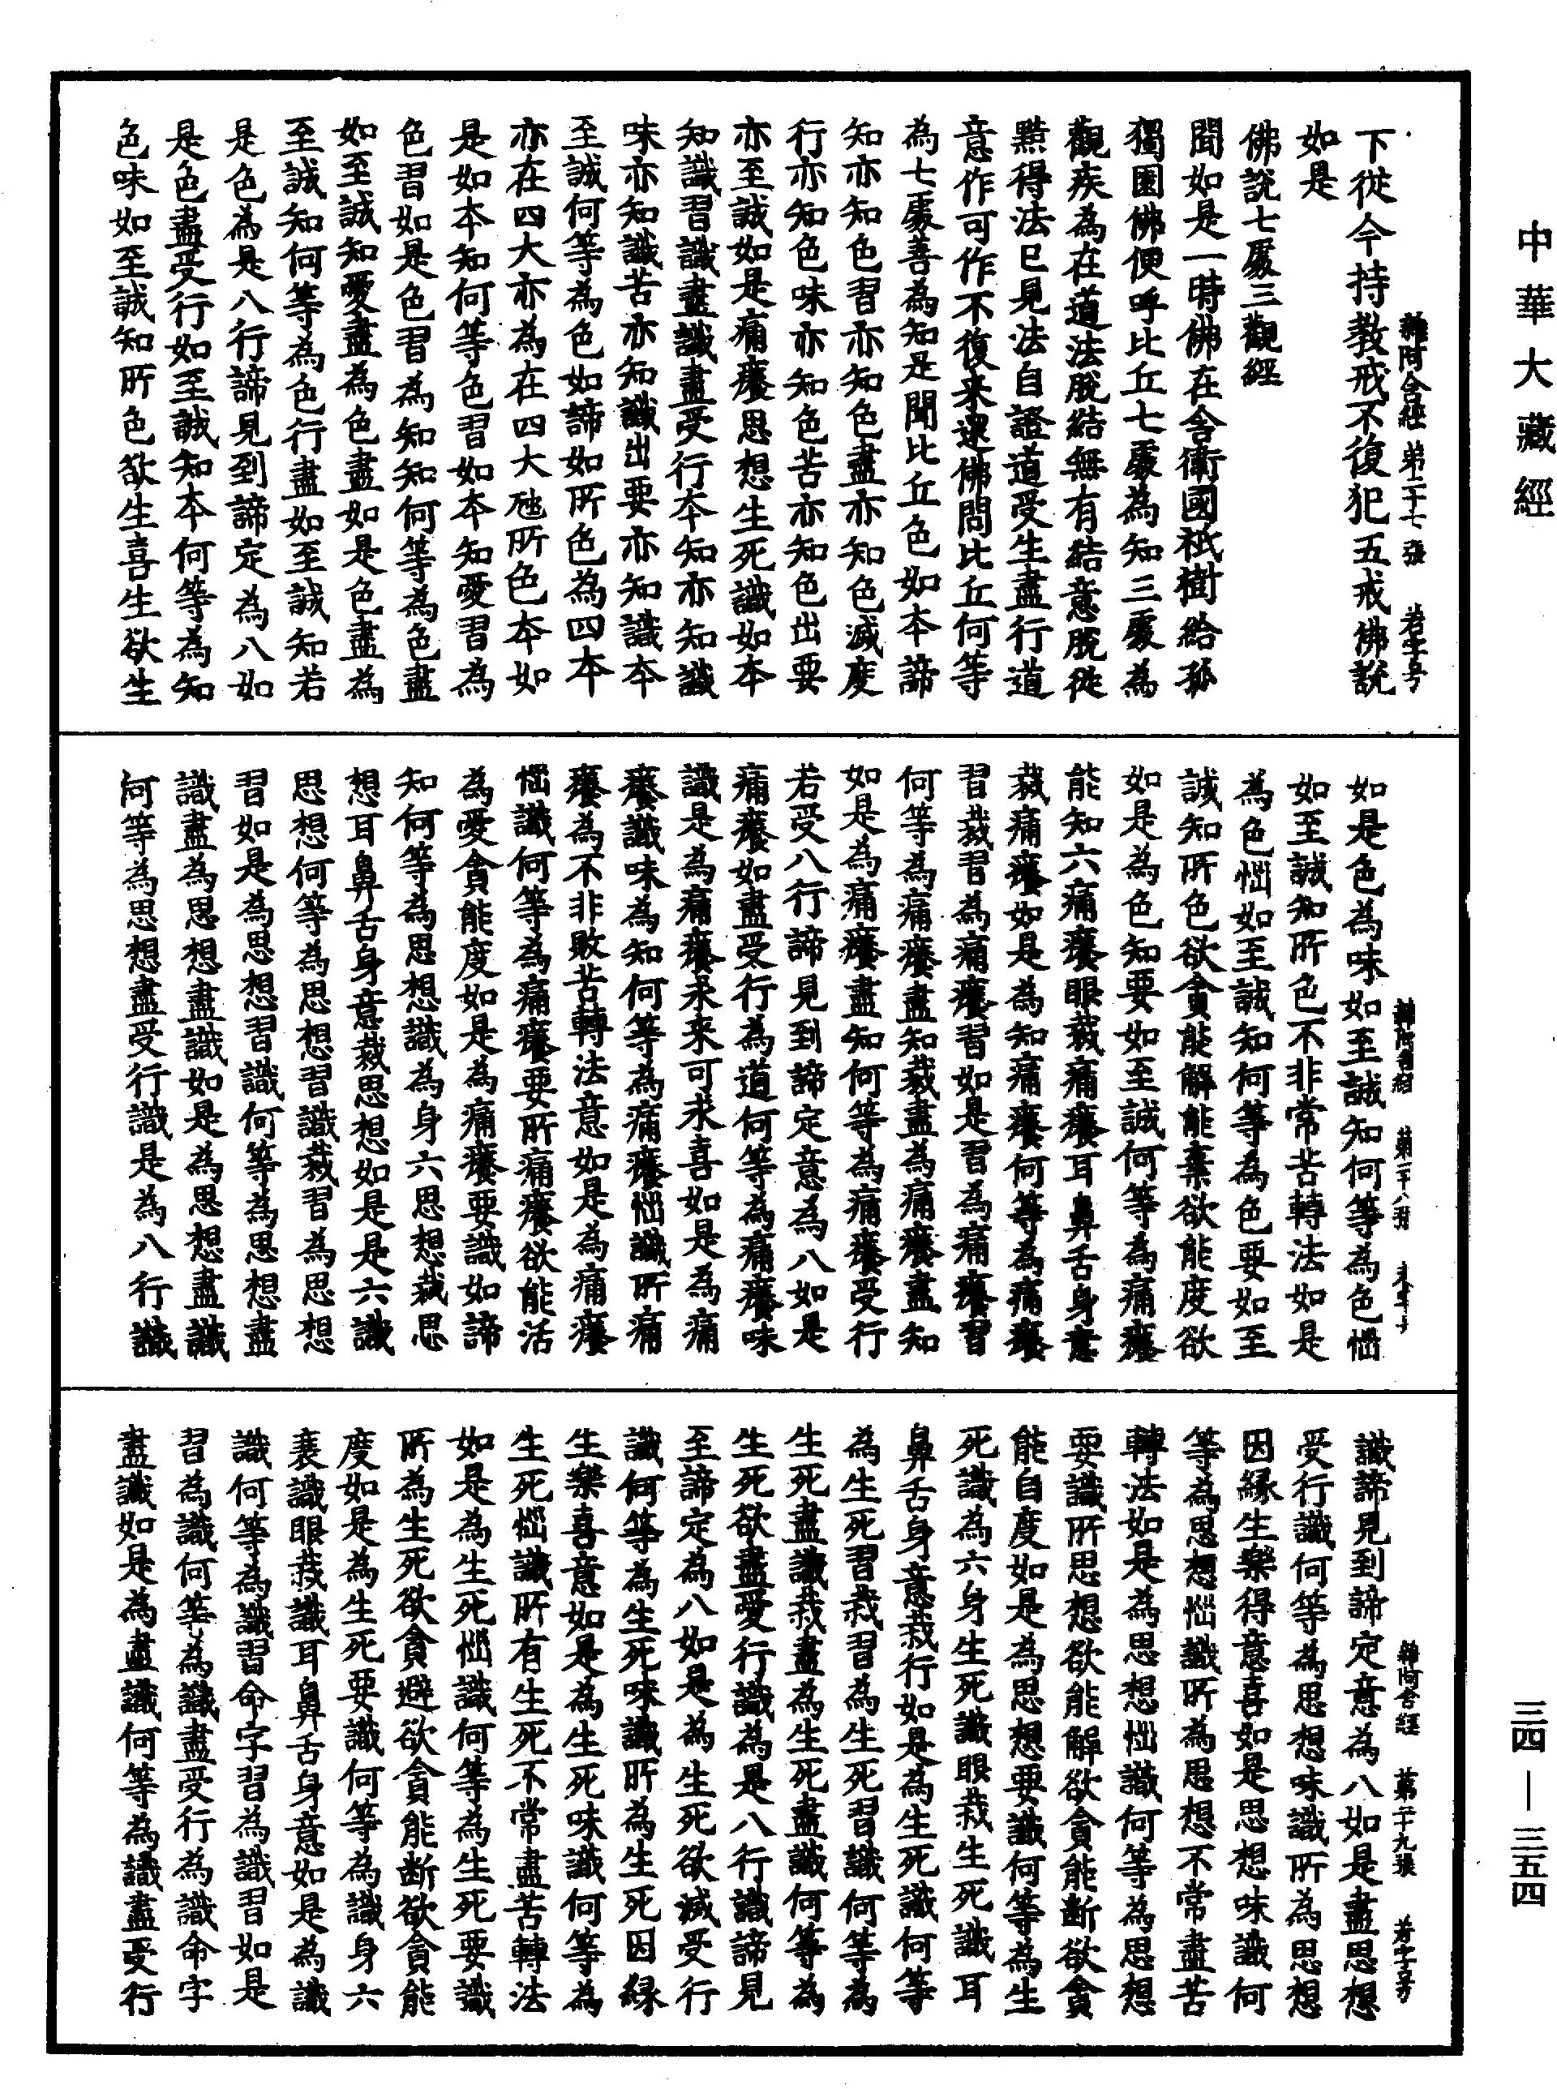 中華大藏經
雜阿含經 第二十七張 若字号
下從今持教戒不復犯五戒佛說
如是
佛說七處三觀經
聞如是一時佛在舍衛國祇樹給孤
獨園佛便呼比丘七處為知三處為
觀疾為在道法脫結無有結意脫從
黠得法已見法自證道受生盡行道
意作可作不復來還佛問比丘何等
為七處善為知是聞比丘色如本諦
知亦知色習亦知色盡亦知色滅度
行亦知色味亦知色苦亦知色出要
亦至誠如是痛癢思想生死識如本
知識習識盡識盡受行本知亦知識
味亦知識苦亦知識出要亦知識本
至誠何等為色如諦如所色為四本
亦在四大亦為在四大虺所色本如
是如本知何等色習如本知愛習為
色習如是色習為知知何等為色盡
如至誠知愛盡為色盡如是色盡為
至誠知何等為色行盡如至誠知若
是色為是八行諦見到諦定為八如
是色盡受行如至誠知本何等為知
色味如至誠知所色欲生喜生欲生
如是色為味如至誠知何等為色惱
如至誠知所色不非常苦轉法如是
為色惱如至誠知何等為色要如至
誠知所色欲貪能解能棄欲能度欲
如是為色知要如至誠何等為痛癢
能知六痛癢眼裁痛癢耳鼻舌身意
裁痛癢如是為知痛癢何等為痛癢
習裁習為痛癢習如是習為痛癢習
何等為痛癢盡知裁盡為痛癢盡知
如是為痛癢盡知何等為痛癢受行
若受八行諦見到諦定意為八如是
痛癢如盡受行為道何等為痛癢味
識是為痛癢求來可求喜如是為痛
癢識味為知何等為痛癢惱識所痛
癢為不非敗苦轉法意如是為痛癢
惱識何等為痛癢要所痛癢欲能活
為愛貪能度如是為痛癢要識如諦
知何等為思想識為身六思想裁思
想耳鼻舌身意裁思想如是是六識
思想何等為思想習識裁習為思想
習如是為思想習識何等為思想盡
識盡為思想盡識如是為思想盡識
何等為思想盡受行識是為八行識
雜阿含經 第二十九張 若字号
識諦見到諦定意為八如是盡思想
受行識何等為思想味識所為思想
因緣生樂得意喜如是思想味識何
等為思想惱識所為思想不常盡苦
轉法如是為思想惱識何等為思想
要識所思想欲能解欲貪能斷欲貪
能自度如是為思想要識何等為生
死識為六身生死識眼裁生死識耳
鼻舌身意裁行如是為生死識何等
為生死習裁習為生死習識何等為
生死盡識裁盡為生死盡識何等為
生死欲盡愛行識為是八行識諦見
至諦定為八如是為生死欲滅受行
識何等為生死味識所為生死因緣
生樂喜意如是為生死味識何等為
生死惱識所有生死不常盡苦轉法
如是為生死惱識何等為生死要識
所為生死欲貪避欲貪能斷欲貪能
度如是為生死要識何等為識身六
衰識眼裁識耳鼻舌身意如是為識
識何等為識習命字習為識習如是
習為識何等為識盡受行為識命字
盡識如是為盡識何等為識盡受行
三四—三五四